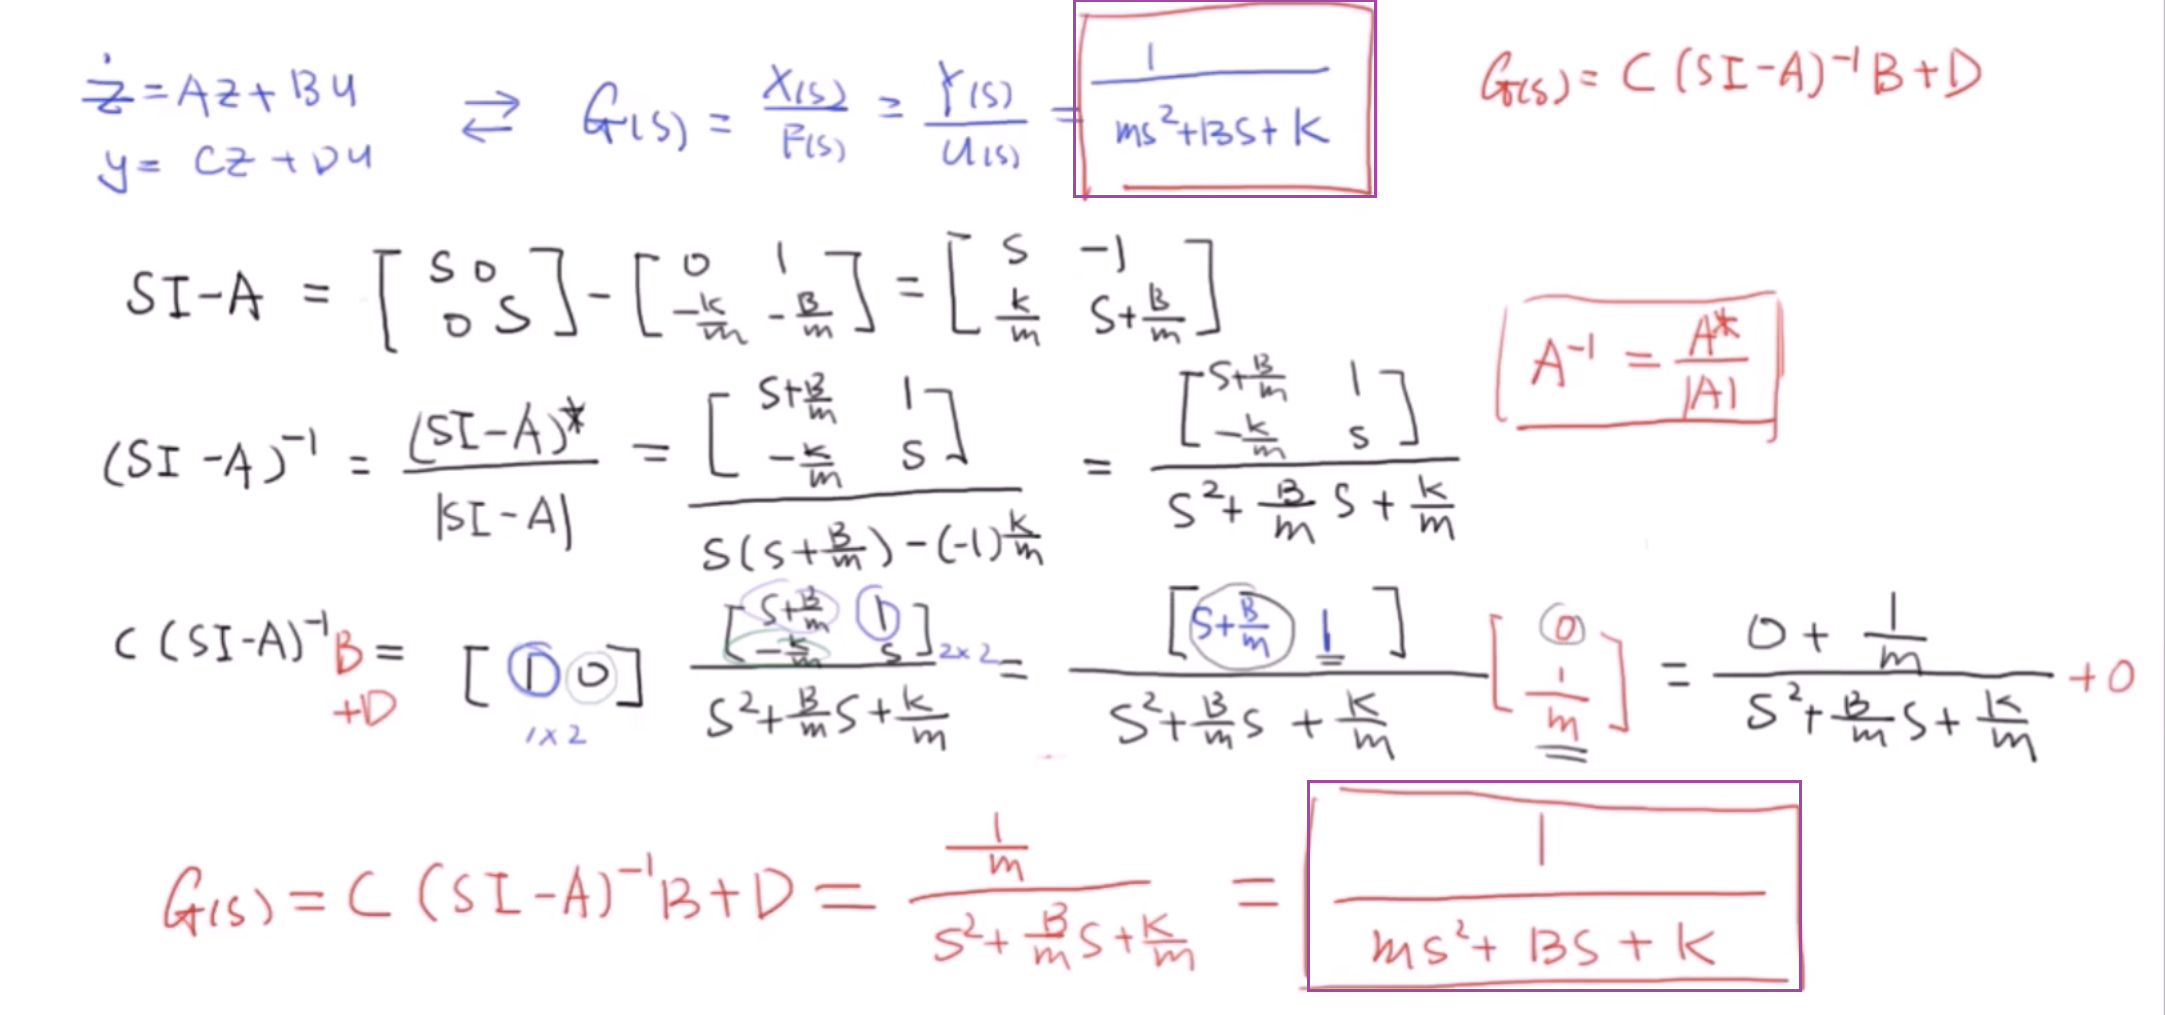 ż = Az + Bu ⇄ G(s) = X(s)/F(s) = Y(s)/U(s) = 1/(ms²+Bs+K) G(s) = C(SI-A)⁻¹B+D
y = Cz + Du
SI-A = [s 0; 0 s] - [0 1; -k/m -B/m] = [s -1; k/m s+B/m]
A⁻¹ = A*/|A|
(SI-A)⁻¹ = (SI-A)*/|SI-A| = [s+B/m 1; -k/m s]/(s(s+B/m)-(-1)k/m) = [s+B/m 1; -k/m s]/(s²+B/m s+k/m)
C(SI-A)⁻¹B+D = [1 0] 1×2 [s+B/m 1; -k/m s] 2×2/(s²+B/m s+k/m) = [s+B/m 1]/(s²+B/m s+k/m) [0; 1/m] = (0+1/m)/(s²+B/m s+k/m) +0
G(s) = C(SI-A)⁻¹B+D = (1/m)/(s²+B/m s+k/m) = 1/(ms²+Bs+K)